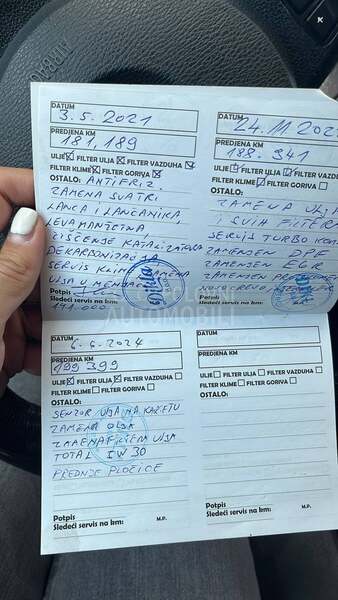 DATUM
3.5.2021
PREDJENA KM
181,189
ULJE FILTER ULJA FILTER VAZDUHA
FILTER KLIME FILTER GORIVA
OSTALO: ANTIFRIZ.
ZAMENA SVATRI
LANCA I LANČANIKA,
LEVA MANŽETNA
ČIŠĆENJE KATALIZATORA
DEKARBONIZACIJA
SERVIS KLIME ZAMENA
ULJA U MENJAČU
Potpis
Sledeći servis na km:
191.000
DATUM
24.11.202
PREDJENA KM
188.341
ULJE FILTER ULJA FILTER VAZDUHA
FILTER KLIME FILTER GORIVA
OSTALO:
ZAMENA ULJA
I SVIH FILTERA
SERVIS TURBO KOM
ZAMENJEN DPF
ZAMENJEN EGR
ZAMENJEN
Potpis
Sledeći servis na km:
DATUM
6.6.2024
PREDJENA KM
199399
ULJE FILTER ULJA FILTER VAZDUHA
FILTER KLIME FILTER GORIVA
OSTALO:
SENZOR ULJA NA KARTERU
ZAMENA ULJA
ZAMENA FILTERA ULJA
TOTAL 5W30
PREDNJE PLOČICE
Potpis
M.P.
Sledeći servis na km:
DATUM
PREDJENA KM
ULJE FILTER ULJA FILTER VAZDUHA
FILTER KLIME FILTER GORIVA
OSTALO:
Potpis
M.P.
Sledeći servis na km: